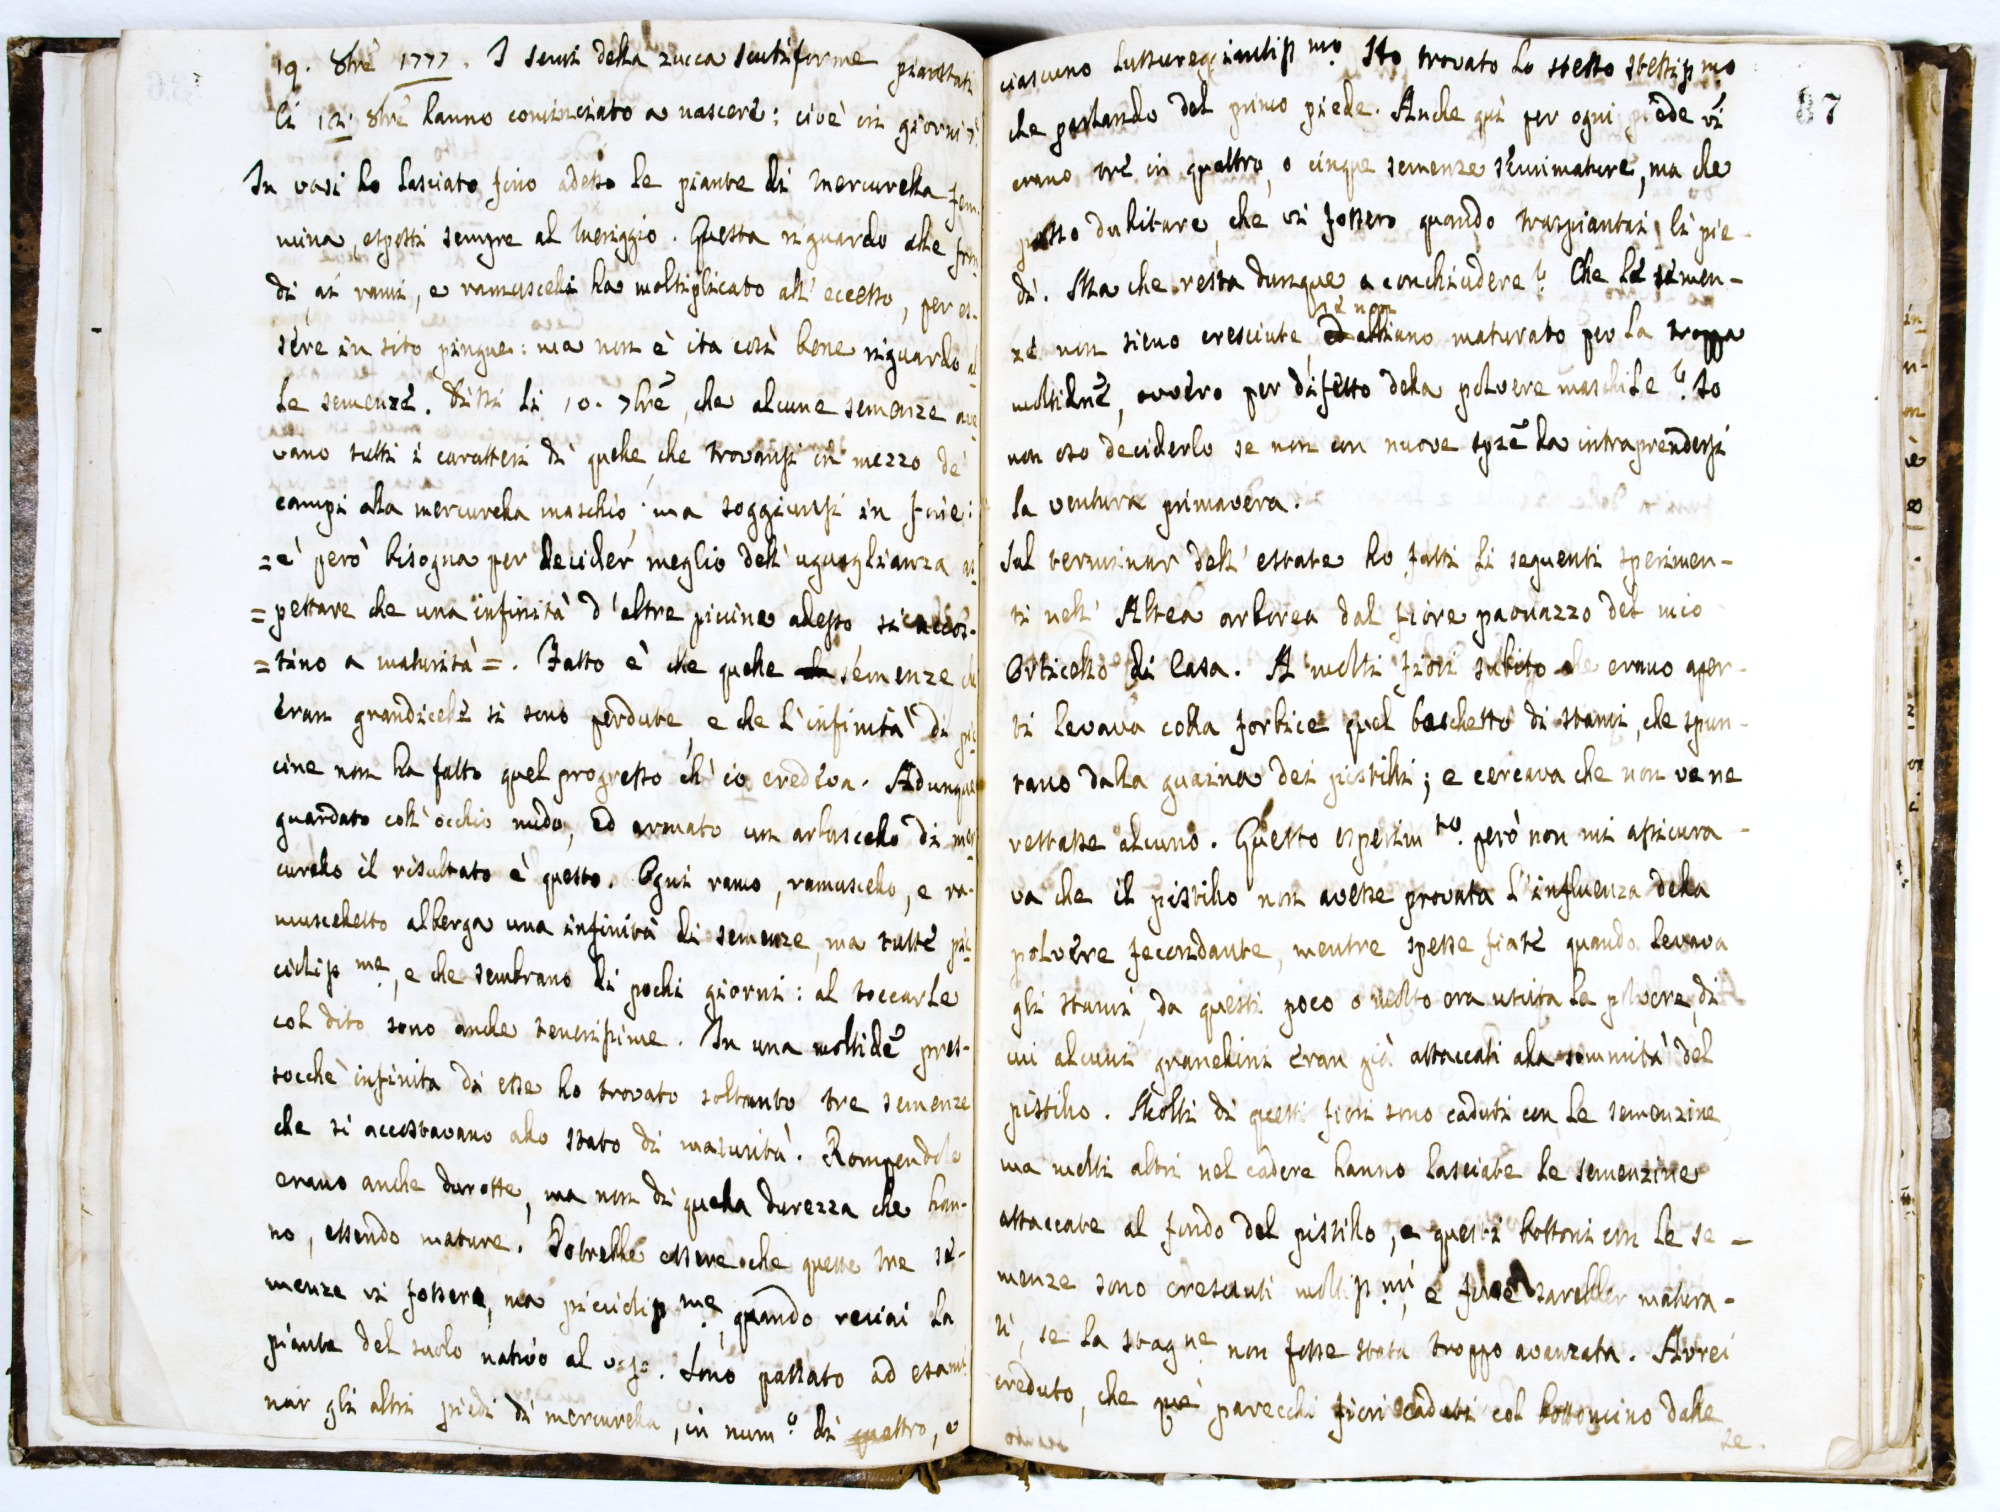 19. 8bre 1777. I semi della zucca scutiforme piantati
li 12. 8bre hanno cominciato a nascere: cioè in giorni 7.
In vasi ho lasciato fino adesso le piante di mercurella fem-
mina, esposti sempre al meriggio. Questa riguardo alle fron
di ai rami, e ramuscelli ha moltiplicato all' eccesso, per es-
sere in sito pingue: ma non è ita così bene riguardo al
le semenze. Dissi li 10. 7bre, che alcune semenze ave
vano tutti i caratteri di quelle, che trovansi in mezzo de'
campi alla mercurella maschio, ma soggiunsi in fine:
= e però bisogna per decider meglio dell' uguaglianza as
= pettare che una infinità d'altre piccine adesso si accos-
= tino a maturità =. Fatto è che quelle semenze che
eran grandicelle si sono perdute, e che l'infinità di pic
cine non ha fatto quel progresso ch' io credeva. Adunque
guardato coll' occhio nudo, ed armato un arbuscello di mer
curella il risultato è questo. Ogni ramo, ramuscello, e ra-
muscelletto alberga una infinità di semenze, ma tutte pic
ciolissme, e che sembrano di pochi giorni: al toccarle
col dito sono anche tenerissime. In una moltidne pres-
socchè infinita di esse ho trovato soltanto tre semenze
che si accostavano allo stato di maturità. Rompendole
erano anche durotte, ma non di quella durezza che han-
no, essendo mature. Potrebbe essere che queste tre se-
menze vi fossero, ma picciolissme, quando recai la
piante del suolo nativo al vaso. Sono passato ad esami
nar gli altri piedi di mercurella, in numo di quattro, e
87
ciascuno lussureggiantissmo. Ho trovato lo stesso stessissmo
che parlando del primo piede. Anche quì per ogni piede vi
erano tre in quattro, o cinque semenze semimature, ma che
posso dubitare, che vi fossero quando traspiantai li pie-
di. Ma che resta dunque a conchiudere? Che le semen-
ze non sieno cresciute, nè non abbiano maturato per la troppa
moltidne, ovvero per difetto della polvere maschile? Io
non oso deciderlo se non con nuove spze da intraprendersi
la ventura primavera.
Sul terminar dell' estate ho fatti li seguenti sperimen-
ti nell' Altea arborea dal fiore paonazzo del mio
Orticello di Casa. A molti fiori subito che erano aper-
ti levava colla forbice quel boschetto di stami, che spun-
tano dalla guaina dei pistilli; e cercava che non ve ne
restasse alcuno. Questo esperimto. però non mi assicura-
va che il pistillo non avesse provata l'influenza della
polvere fecondante, mentre spesse fiate quando levava
gli stami, da questi poco o molto era uscita la polvere, di
cui alcuni granellini eran già attaccati alla sommità del
pistillo. Molti di questi fiori sono caduti con le semenzine,
ma molti altri nel cadere hanno lasciate le semenzine
attaccate al fondo del pistillo, e questi bottoni con le se-
menze sono cresciuti moltissmi, e forse sarebber matura-
ti, se la stagne non fosse stata troppo avanzata. Avrei
creduto, che que' parecchi fiori caduti col bottoncino dalle
se.